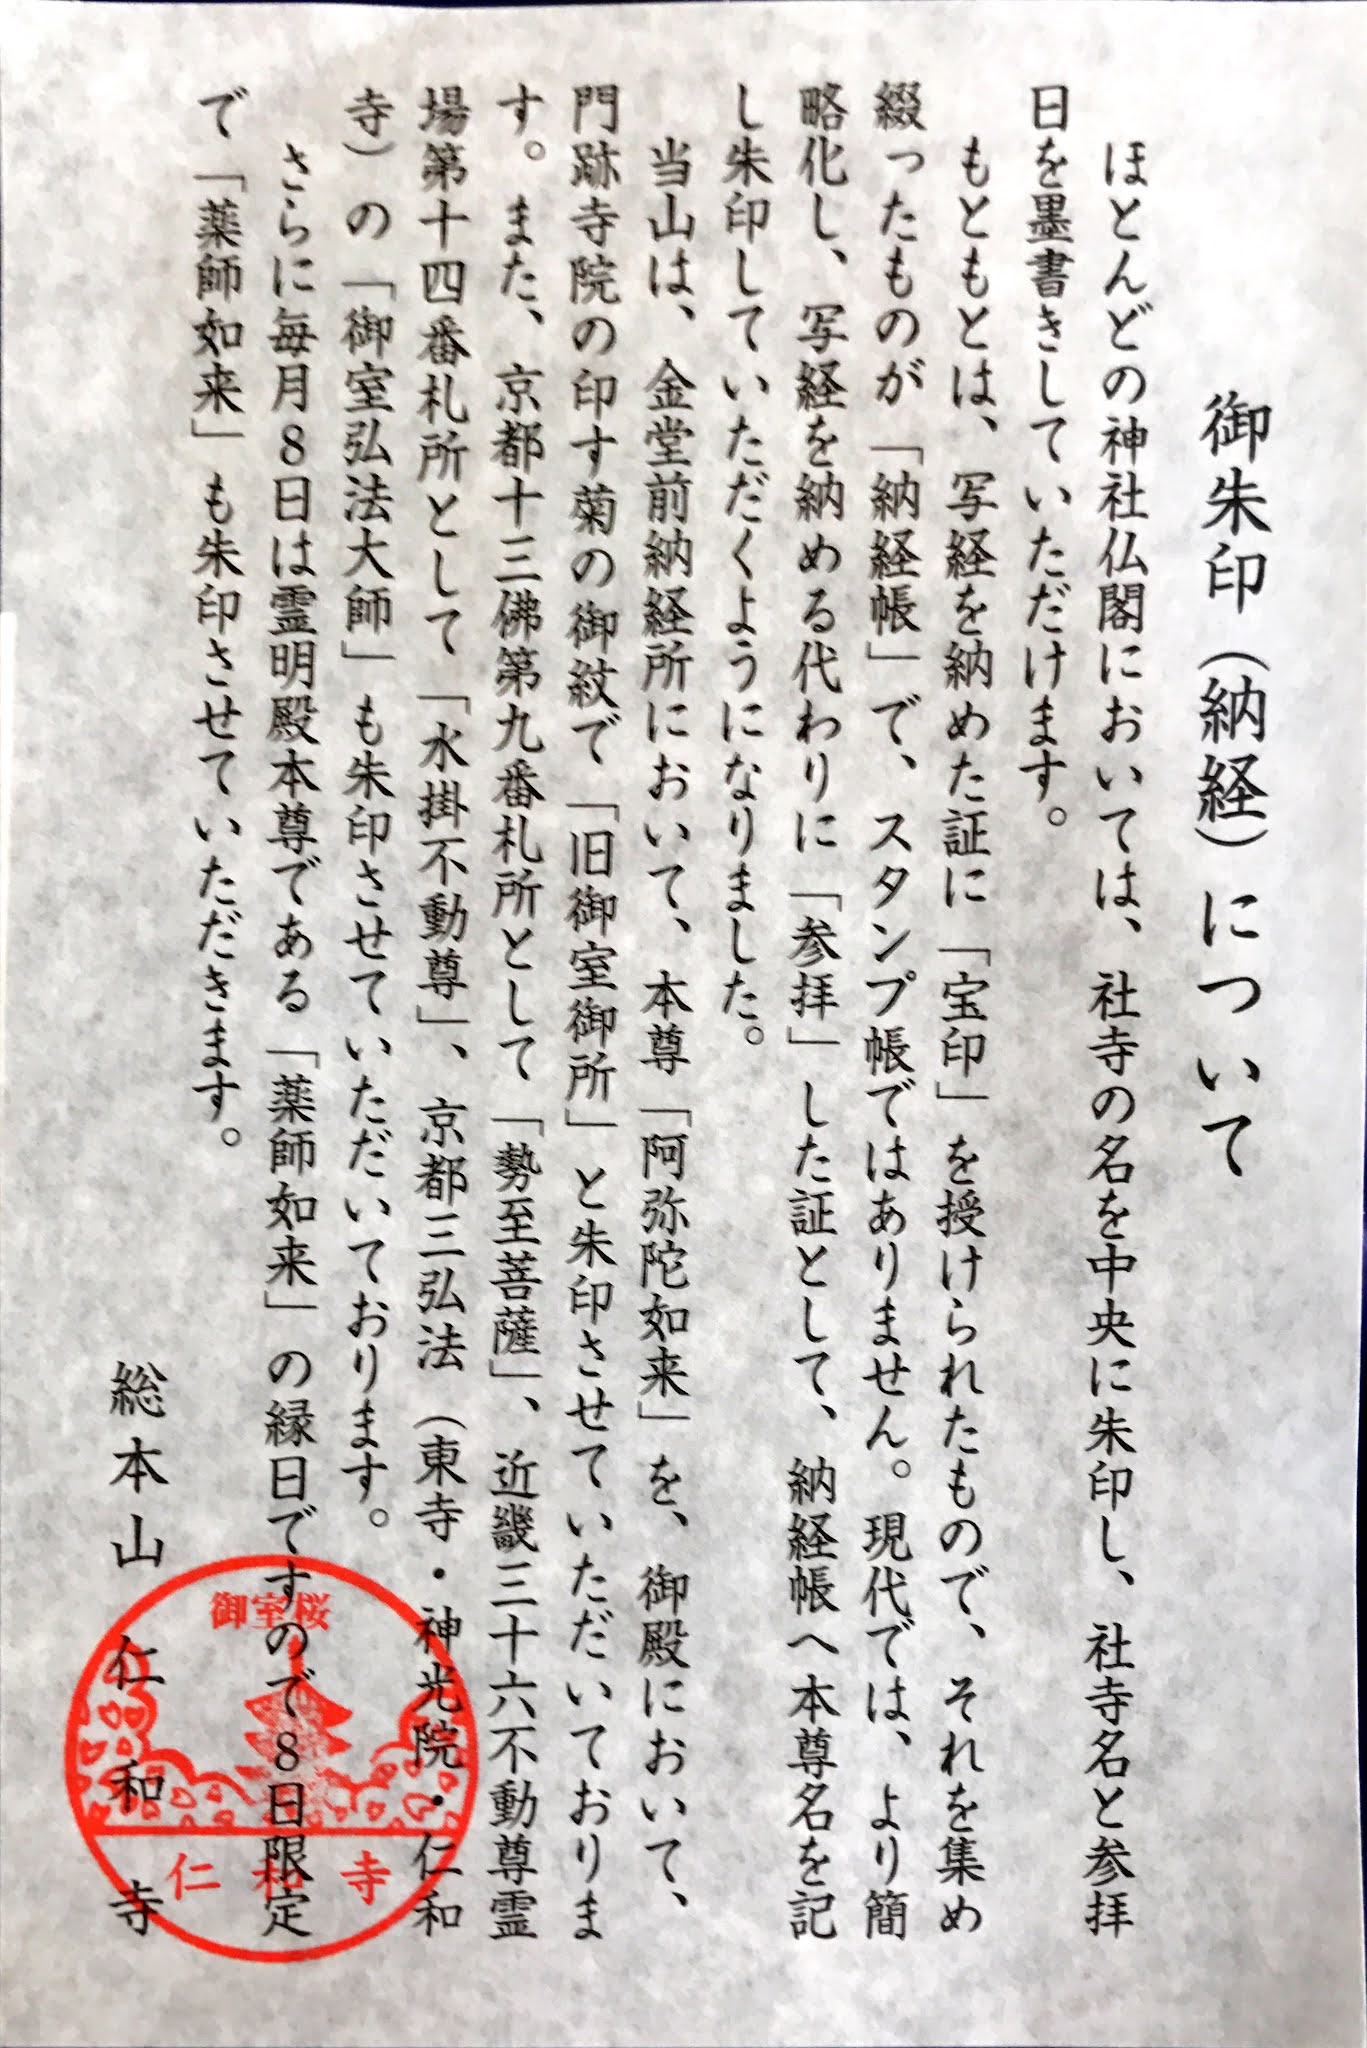 御朱印（納経）について
ほとんどの神社仏閣においては、社寺の名を中央に朱印し、社寺名と参拝
日を墨書きしていただけます。
もともとは、写経を納めた証に「宝印」を授けられたもので、それを集め
綴ったものが「納経帳」で、スタンプ帳ではありません。現代では、より簡
略化し、写経を納める代わりに「参拝」した証として、納経帳へ本尊名を記
し朱印していただくようになりました。
当山は、金堂前納経所において、本尊「阿弥陀如来」を、御殿において、
門跡寺院の印す菊の御紋で「旧御室御所」と朱印させていただいておりま
す。また、京都十三佛第九番札所として「勢至菩薩」、近畿三十六不動尊霊
場第十四番札所として「水掛不動尊」、京都三弘法（東寺・神光院・仁和
寺）の「御室弘法大師」も朱印させていただいております。
さらに毎月８日は霊明殿本尊である「薬師如来」の縁日ですので８日限定
で「薬師如来」も朱印させていただきます。
総本山 仁和寺
御室桜
仁和寺